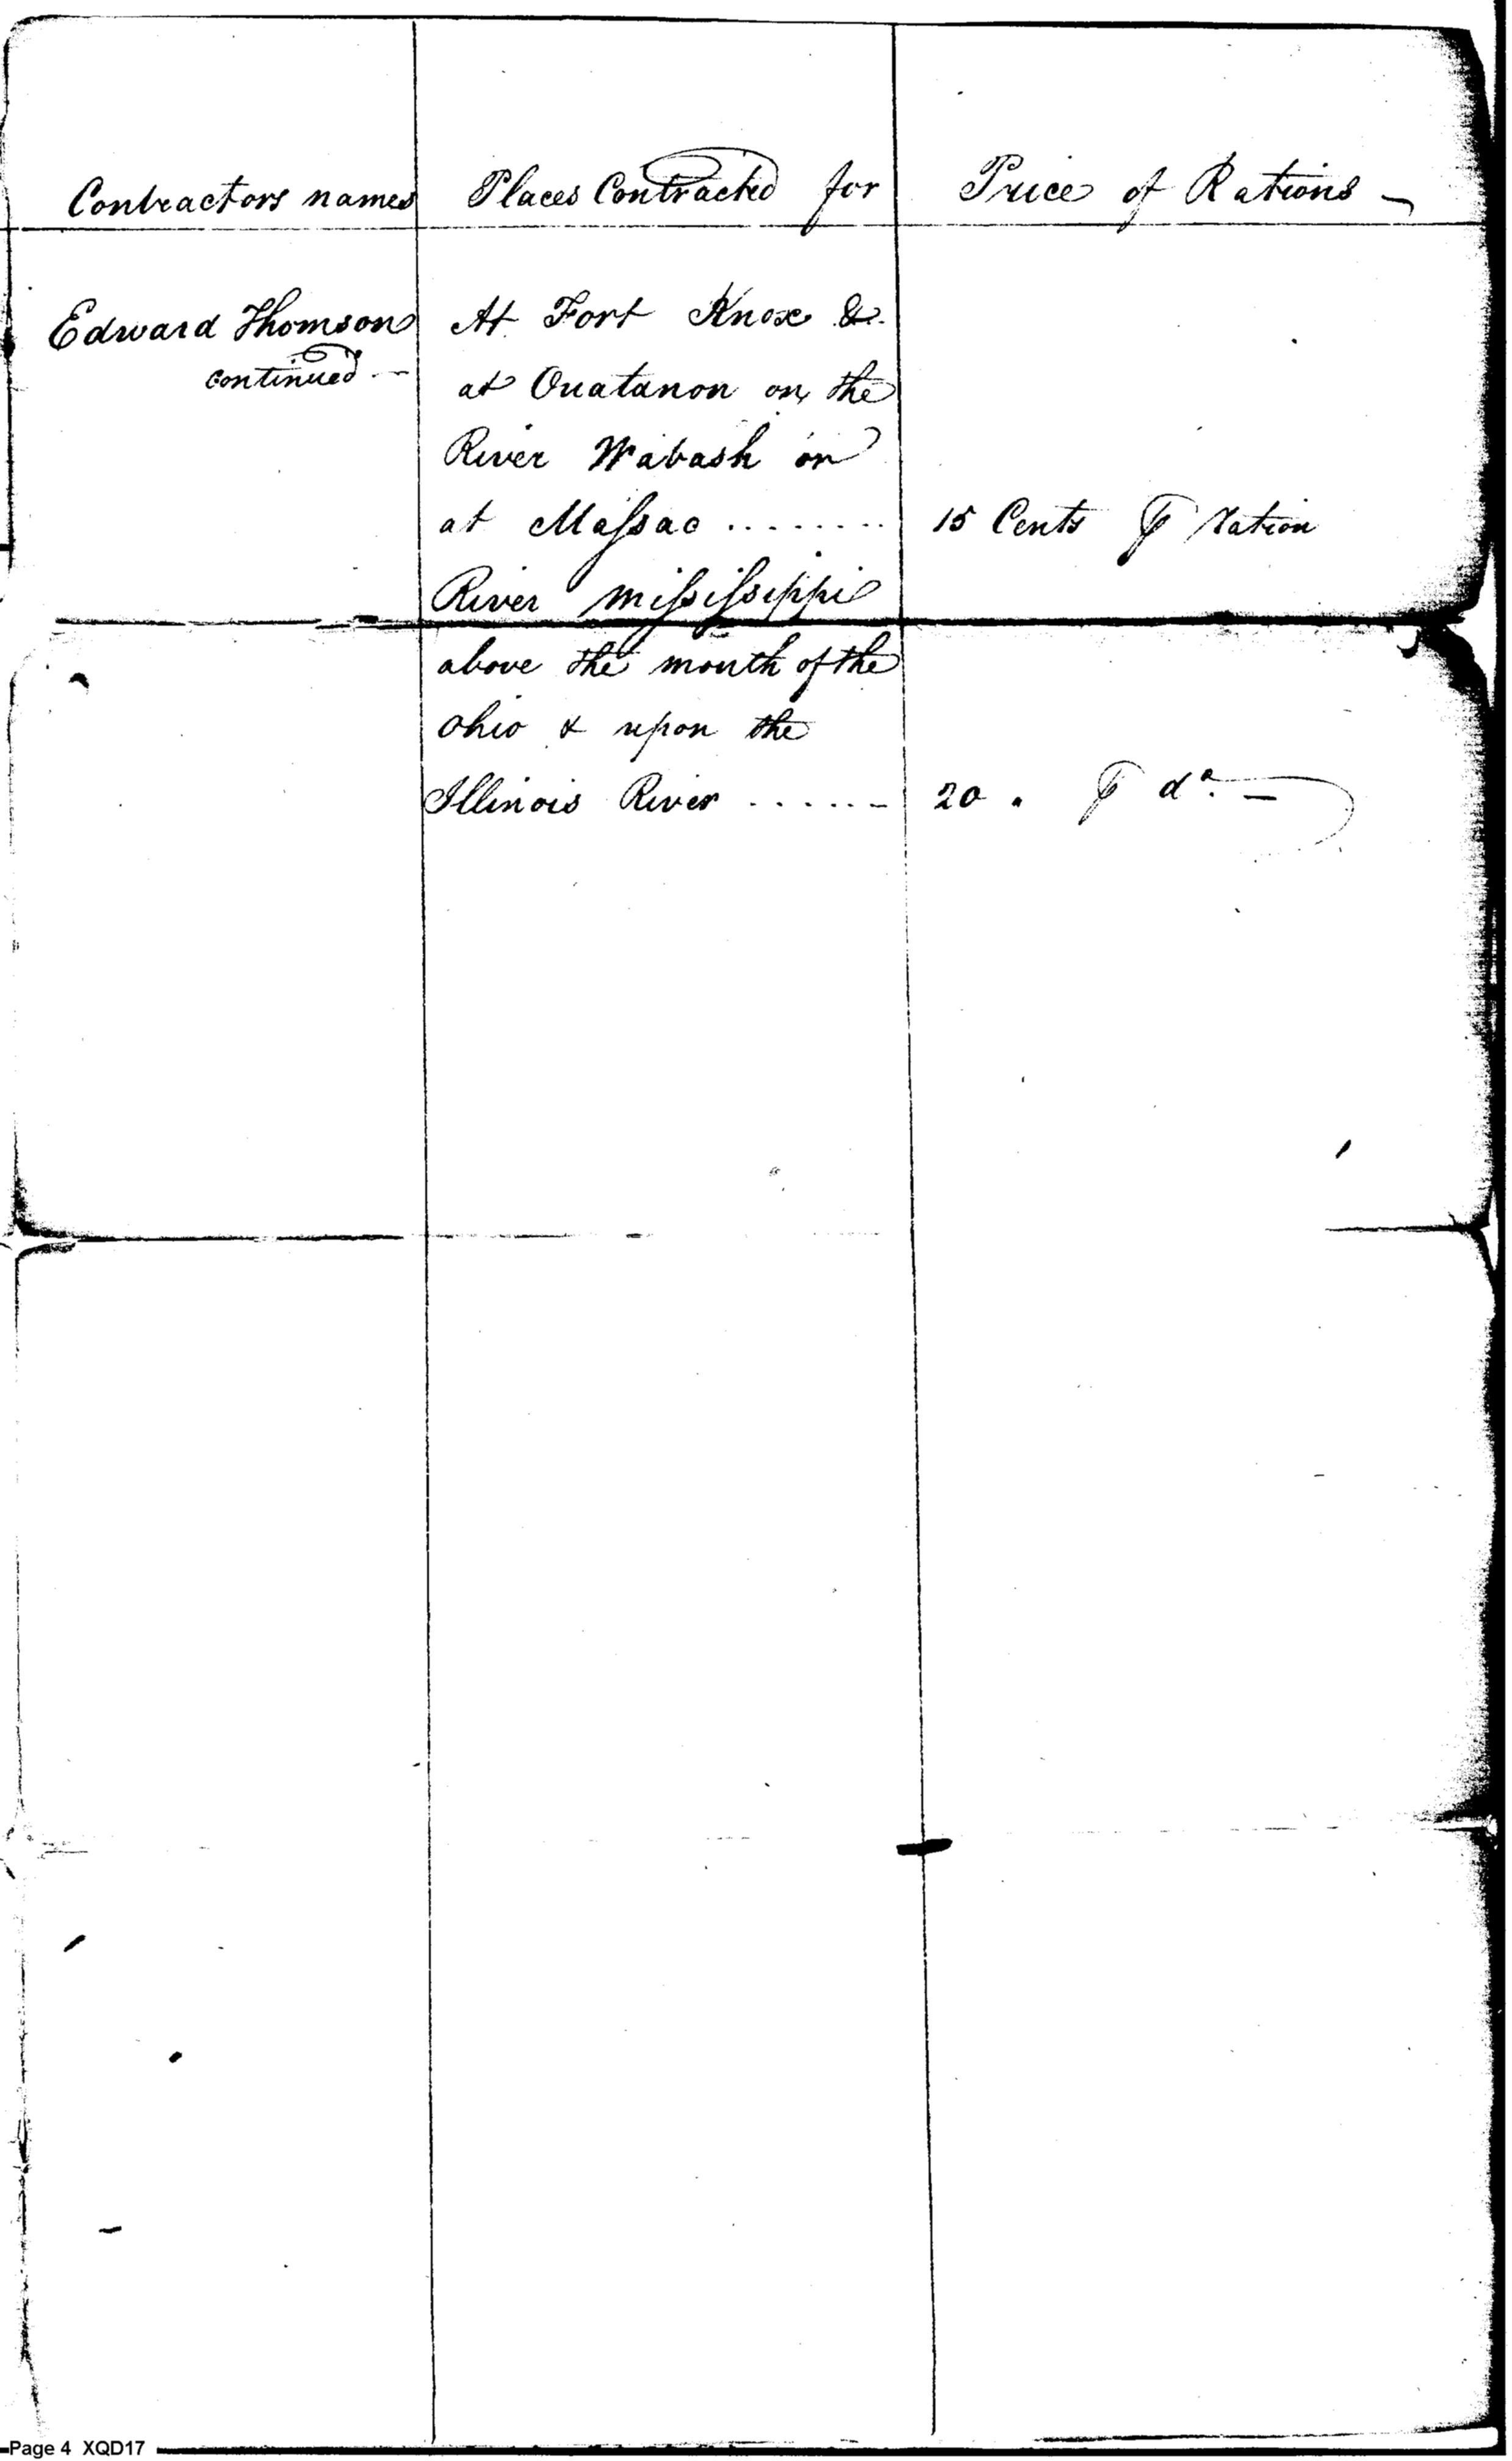 Contractors names Places Contracted for Price of Rations
Edward Thomson At Fort Knox &
continued at Ouatanon on the
River Wabash or
at Massac ........ 15 Cents ⅌ ration
River Mississippi
above the mouth of the
Ohio & upon the
Illinois River ...... 20 " ⅌ do. —
Page 4 XQD17